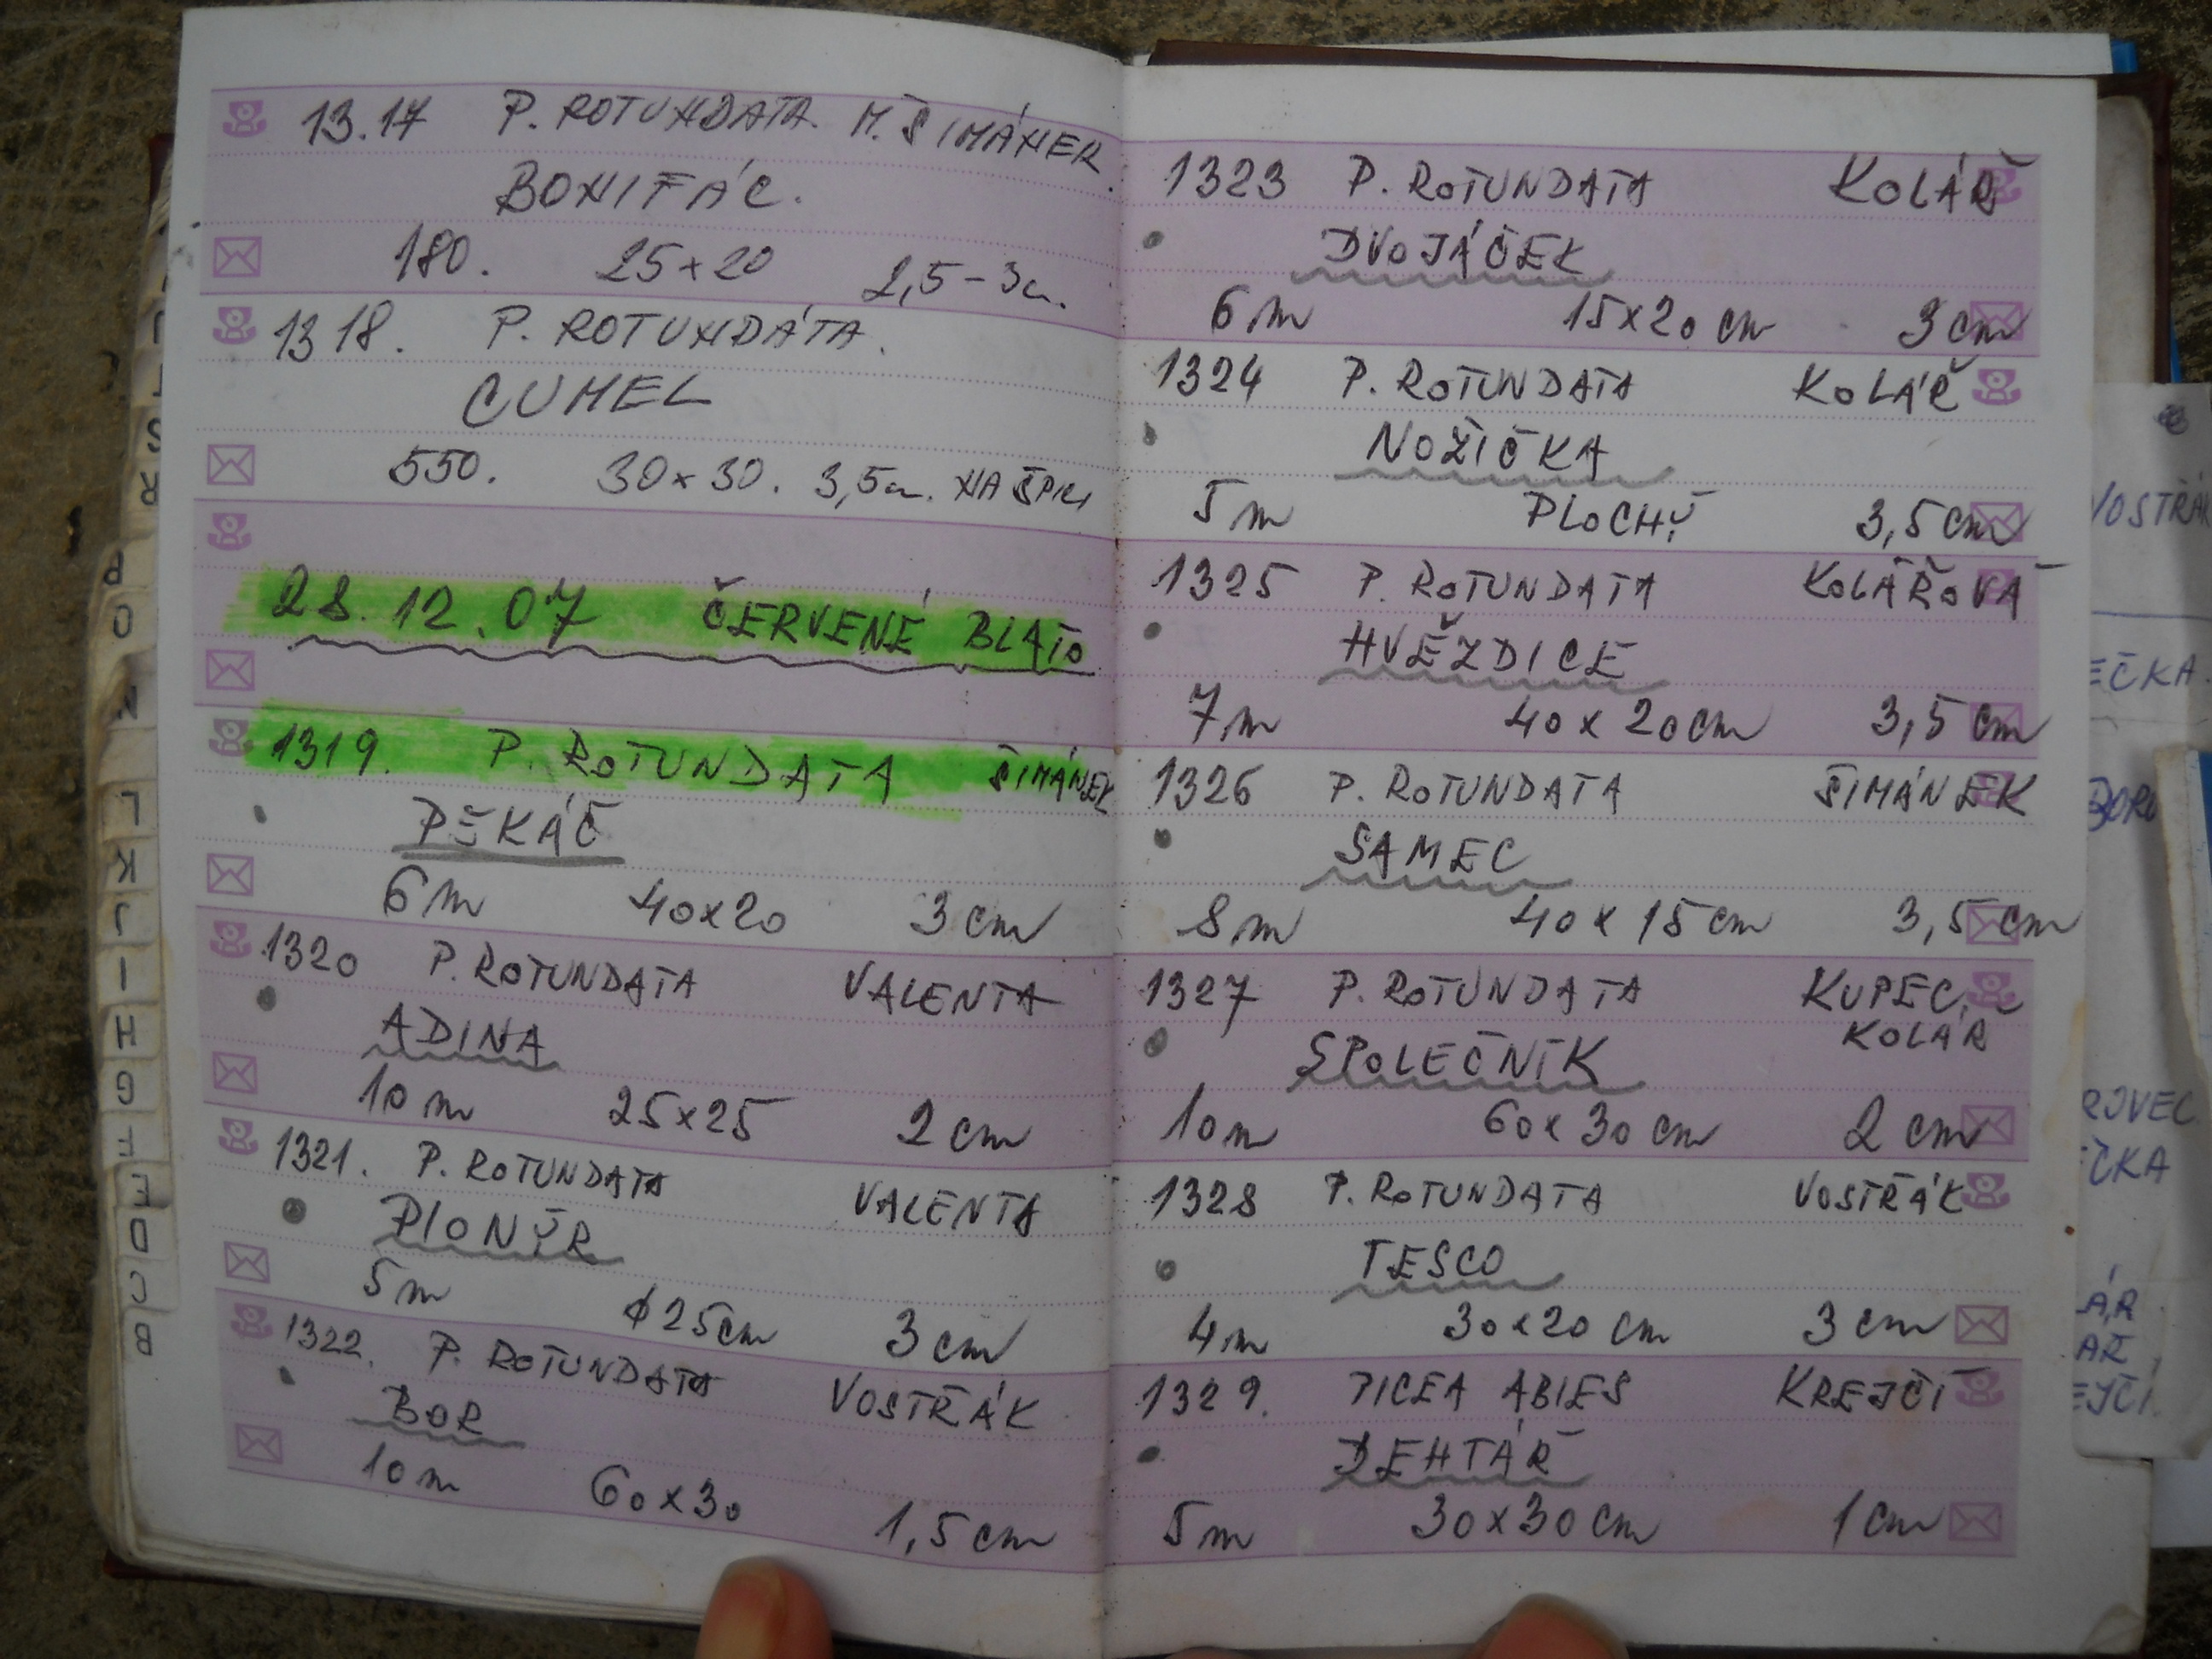 13.17 P. ROTUNDATA. M. ŠIMÁNEK.
BONIFÁC.
180. 25×20 2,5-3cm.
1318. P. ROTUNDÁTA.
CUMEL
550. 30×30. 3,5cm. NA ŠPICI
28.12.07 ČERVENÉ BLATO
1319. P. ROTUNDATA ŠIMÁNEK
PEKÁČ
6m 40×20 3cm
1320 P. ROTUNDATA VALENTA
ADINA
10m 25×25 2cm
1321. P. ROTUNDATA VALENTA
PIONÝR
5m ϕ25cm 3cm
1322. P. ROTUNDATA VOSTŘÁK
BOR
10m 60×30 1,5cm
1323 P. ROTUNDATA KOLÁŘ
DVOJÁČEK
6m 15×20cm 3cm
1324 P. ROTUNDATA KOLÁŘ
NOŽIČKA
5m PLOCHÝ 3,5cm
1325 P. ROTUNDATA KOLÁŘOVÁ
HVĚZDICE
7m 40×20cm 3,5cm
1326 P. ROTUNDATA ŠIMÁNEK
SAMEC
8m 40×15cm 3,5cm
1327 P. ROTUNDATA KUPEC,
KOLÁŘ
SPOLEČNÍK
10m 60×30cm 2cm
1328 P. ROTUNDATA VOSTŘÁK
TESCO
4m 30×20cm 3cm
1329. PICEA ABIES KREJČÍ
DEHTÁŘ
5m 30×30cm 1cm
VOSTŘÁK
EČKA
ROVEC
EČKA
ÁŘ
AŘ
EJČÍ
R
P
O
N
L
K
J
I
H
G
F
E
D
C
B